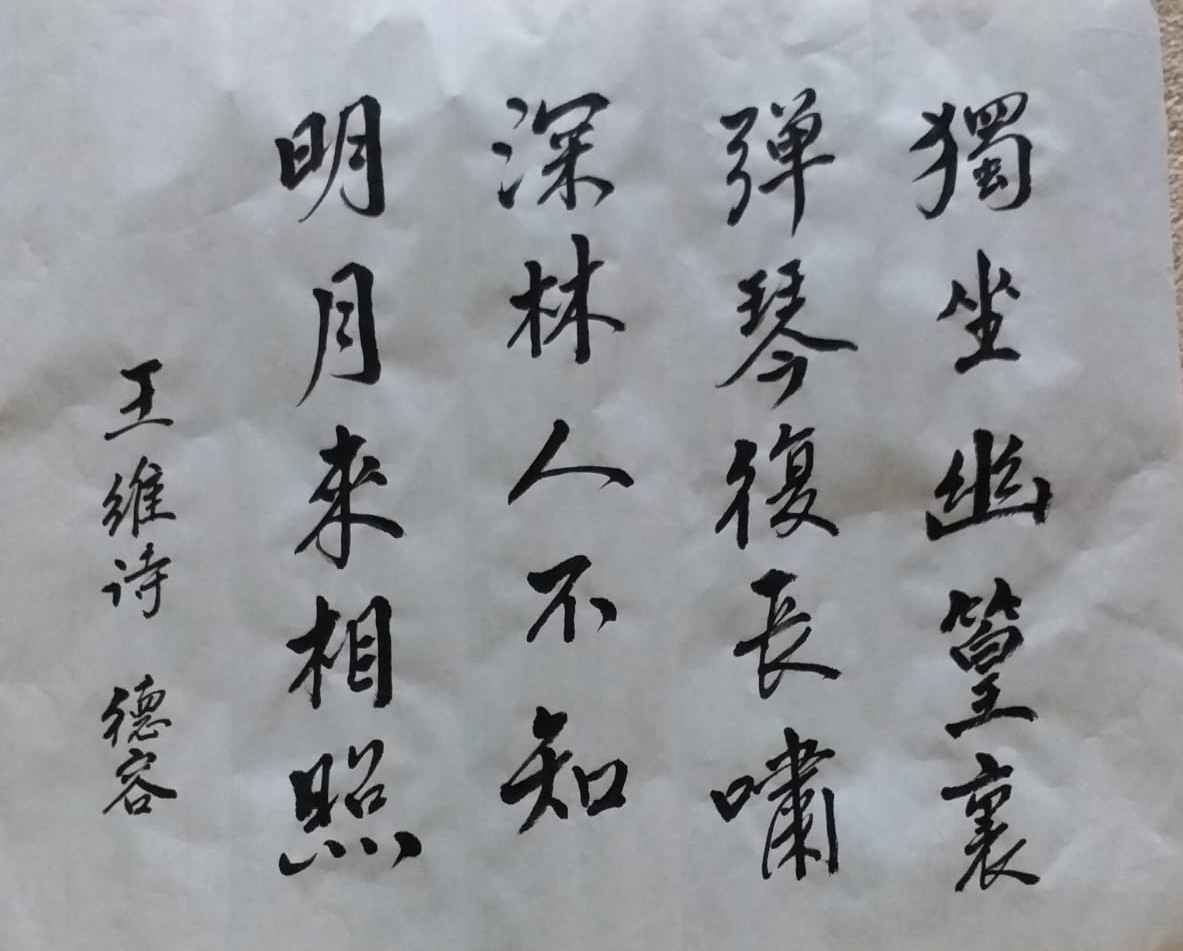 獨坐幽篁裏
弹琴復長嘯
深林人不知
明月來相照
王維诗 德容